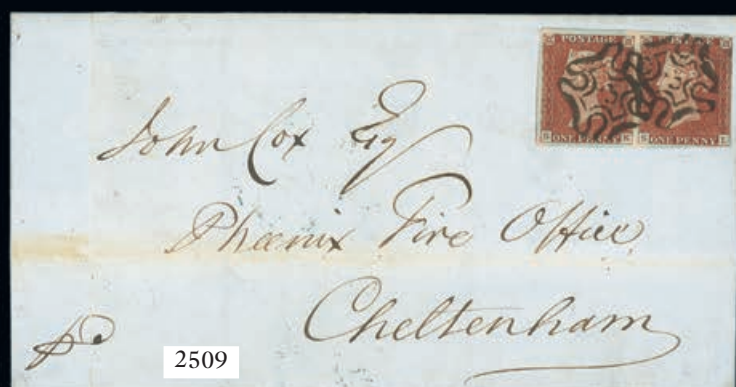 POSTAGE
ONE PENNY ONE PENNY
John Cox Esq
Phœnix Fire Office
Cheltenham
pd
2509